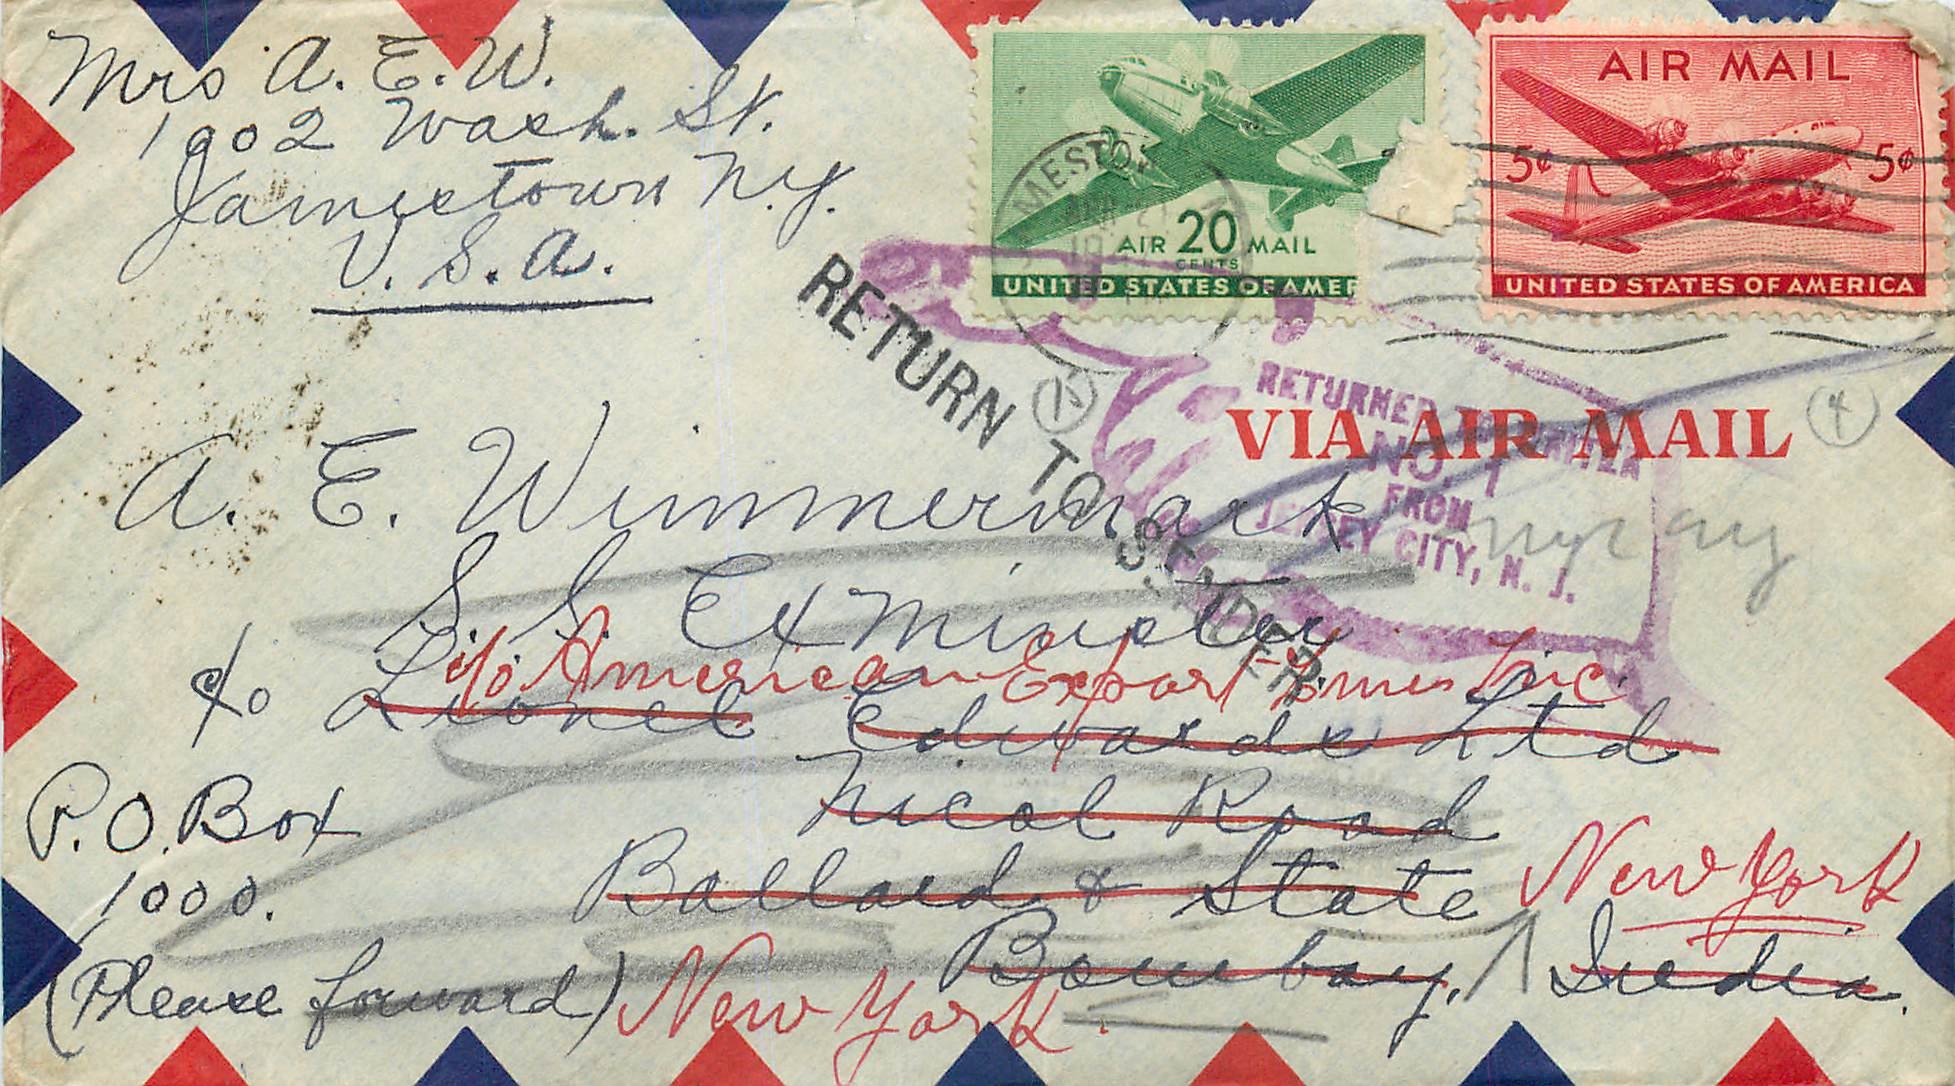 Mrs A. E. W.
1902 Wash. St.
Jamestown N.Y.
U.S.A.
AIR 20 MAIL
CENTS
UNITED STATES OF AMER
AIR MAIL
5¢ 5¢
UNITED STATES OF AMERICA
RETURN TO SENDER
15
4
VIA AIR MAIL
RETURNED TO WRITER
NO. 1
FROM
JERSEY CITY, N. J.
A. E. Wimmermark
S S Exminster
c/o American Export Lines Inc.
c/o Lionel Edwards Ltd
Nicol Road
P.O. Box
1000.
Ballard & State
New York
Bombay, India.
(Please forward)
New York.